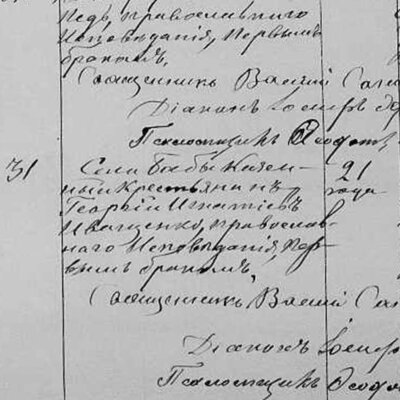 педъ, православнаго
исповѣданія, первымъ
бракомъ.
Священникъ Василій
Діаконъ Іосифъ
Псаломщикъ Ѳеодот
31 Села Бабы казен- 21
ный крестьянинъ года
Георгій Игнатіевъ
Иващенко, православ-
наго исповѣданія, пер-
вымъ бракомъ.
Священникъ Василій
Діаконъ Іосиф
Псаломщикъ Ѳеодо